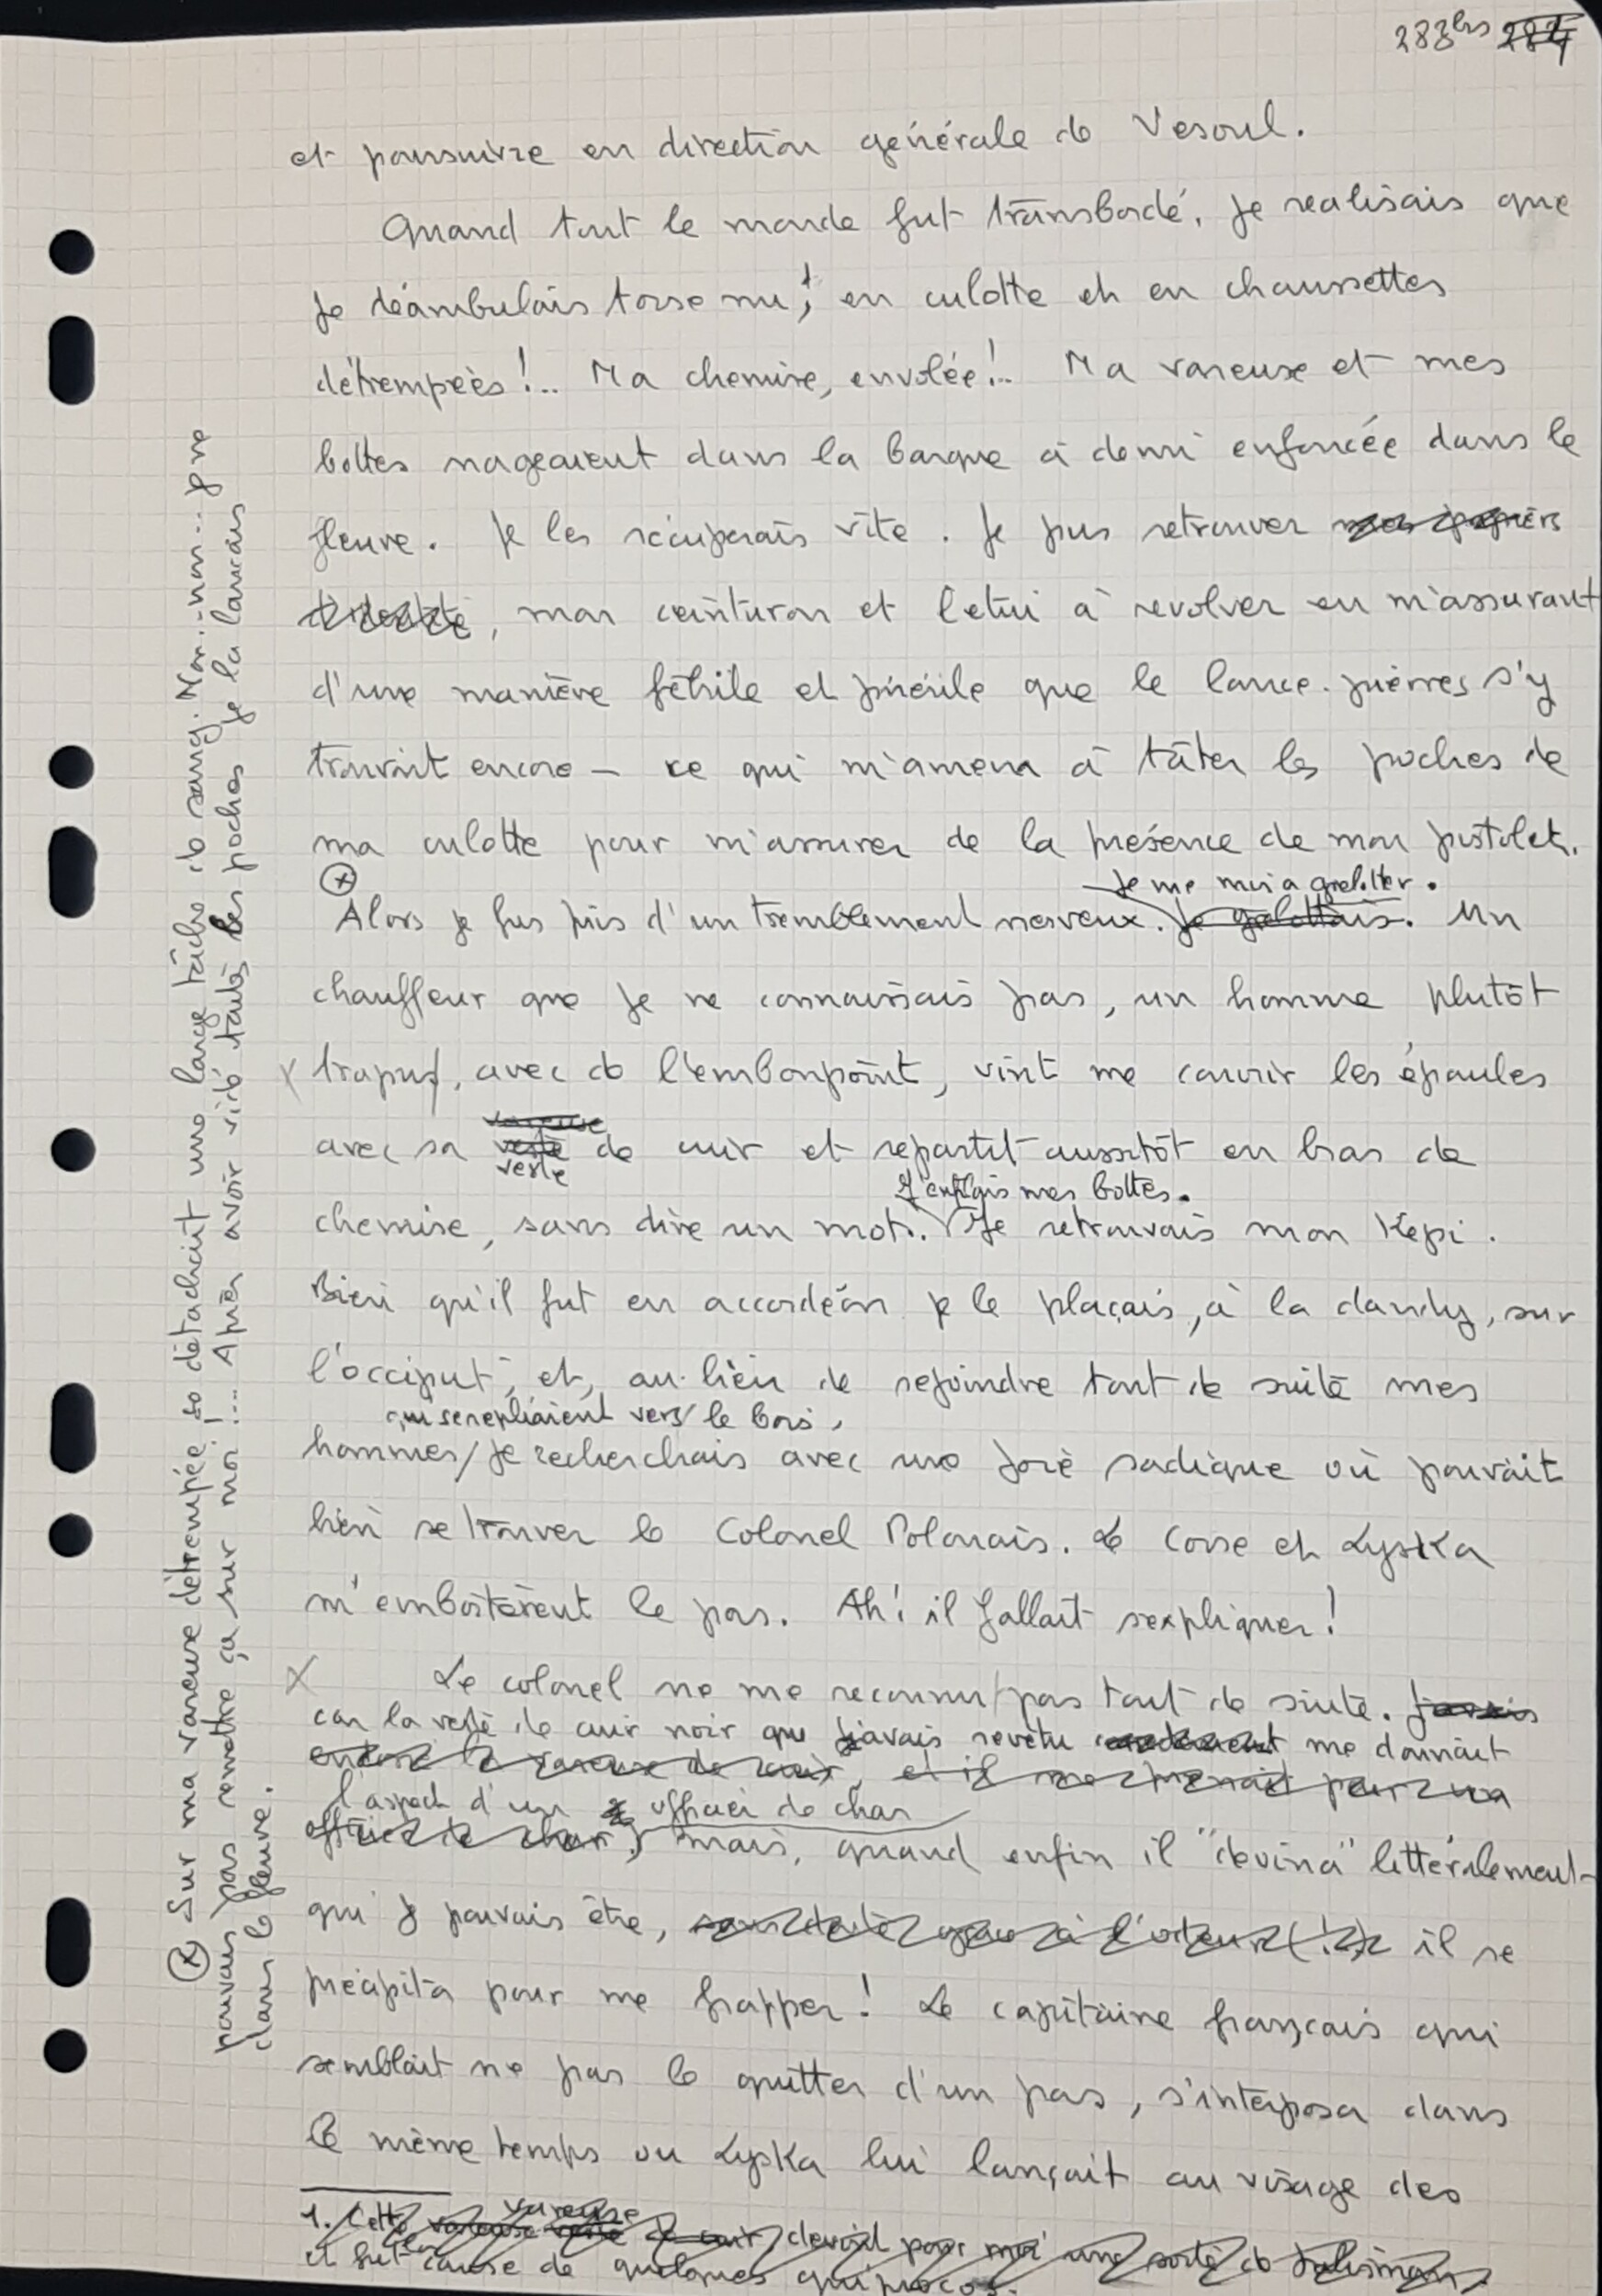 283bis 284
et poursuivre en direction générale de Vesoul.
Quand tout le monde fut transbordé, je realisais que
je déambulais torse nu, en culotte et en chaussettes
détrempées !.. Ma chemise, envolée !.. Ma vareuse et mes
bottes nageaient dans la barque à demi enfoncée dans le
fleuve. Je les récuperais vite. Je pus retrouver mes papiers
d'identité, mon ceinturon et l'etui à revolver en m'assurant
d'une manière fébrile et puérile que le lance-pierres s'y
trouvait encore — ce qui m'amena à tâter les poches de
ma culotte pour m'assurer de la présence de mon pistolet.
Je me mis a grelotter.
Alors je fus pris d'un tremblement nerveux. Je grelottais. Un
chauffeur que je ne connaissais pas, un homme plutôt
x trapu, avec de l'embonpoint, vint me couvrir les épaules
vareuse
avec sa veste de cuir et repartit aussitôt en bras de
veste
J'enfilais mes bottes.
chemise, sans dire un mot. Je retrouvais mon Képi.
Bien qu'il fut en accordéon je le plaçais, à la dandy, sur
l'occiput, et, au lieu de rejoindre tout de suite mes
qui se repliaient vers le bois,
hommes, je recherchais avec une joie sadique où pouvait
bien se trouver le Colonel Polonais. Le Corse et Lyska
m'emboîtèrent le pas. Ah ! il fallait s'expliquer !
x Le colonel ne me reconnu pas tout de suite. J'avais
car la veste de cuir noir que j'avais revêtu me donnait
endossé la vareuse de cuir, et il me prenait pour un
l'aspect d'un officier de char
officier de char, mais, quand enfin il "devina" littéralement
qui je pouvais être, sans doute grâce à l'odeur (!), il se
précipita pour me frapper ! Le capitaine français qui
semblait ne pas le quitter d'un pas, s'interposa dans
le même temps ou Lyska lui lançait au visage des
vareuse
1. Cette vareuse veste de cuir devint pour moi une sorte de talisman.
et fut cause de quelques quiproquos.
x Sur ma vareuse détrempée se détachait une large tâche de sang. Non.. non... je ne
pouvais pas remettre ça sur moi !... Après avoir vidé toutes les poches je la lançais
dans le fleuve.